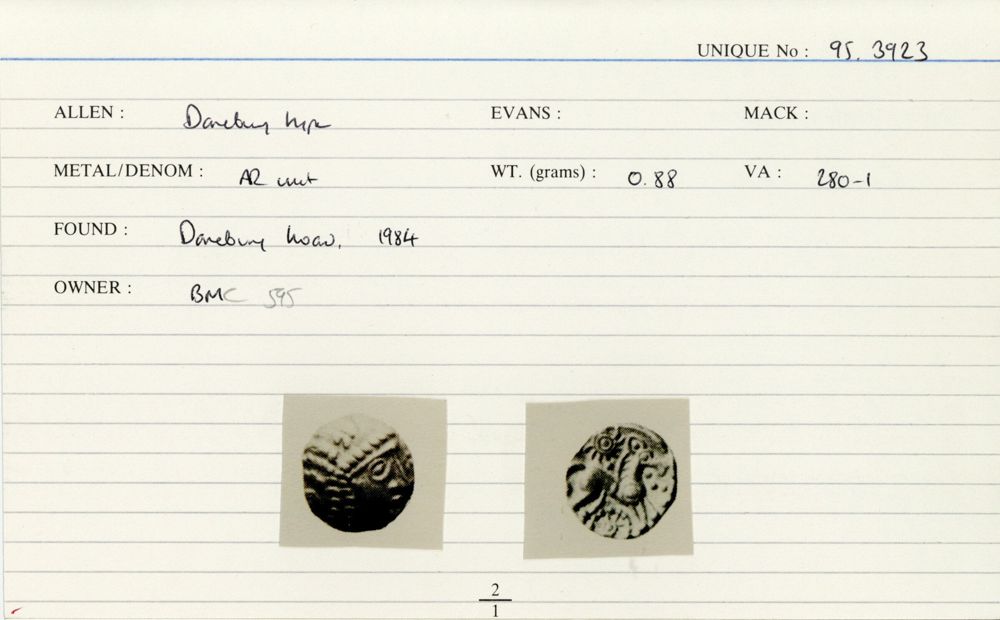 UNIQUE No : 95. 3923
ALLEN : Danebury type EVANS : MACK :
METAL/DENOM : AR unit WT. (grams) : 0.88 VA : 280-1
FOUND : Danebury hoard, 1984
OWNER : BMC 595
2
1